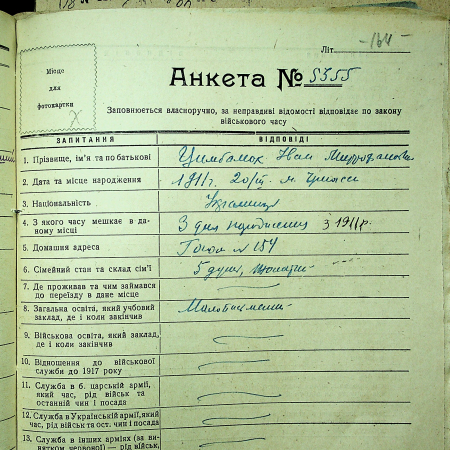 Літ. -164-
Місце
для
фотокартки
Анкета № 5355
Заповнюється власноручно, за неправдиві відомості відповідає по закону
військового часу
ЗАПИТАННЯ ВІДПОВІДІ
1. Прізвище, ім'я та по батькові Іван
2. Дата та місце народження 1911 р. 20/ІІІ м.
3. Національність Українець
4. З якого часу мешкає в да-
ному місці З дня народження з 1911 р.
5. Домашня адреса Гоголя № 154
6. Сімейний стан та склад сім'ї 5 душ,
7. Де проживав та чим займався
до переїзду в дане місце
8. Загальна освіта, який учбовий
заклад, де і коли закінчив
9. Військова освіта, який заклад,
де і коли закінчив
10. Відношення до військової
служби до 1917 року
11. Служба в б. царській армії,
який час, рід військ та
останній чин і посада
12. Служба в Українській армії, який
час, рід військ та ост. чин і посада
13. Служба в інших арміях (за ви-
нятком червоної) — рід військ,